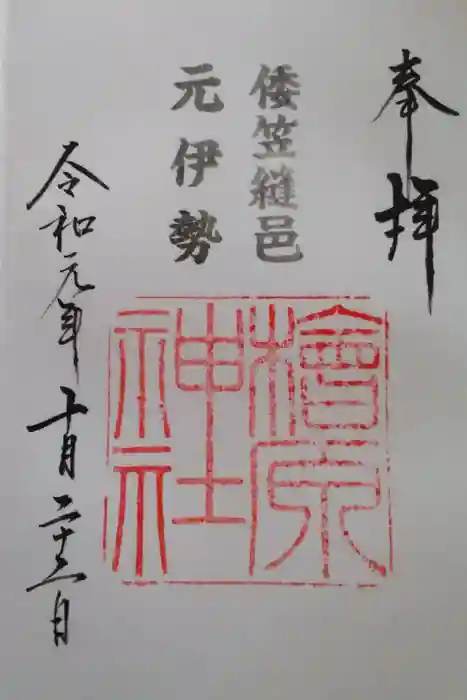 奉拝
倭笠縫邑
元伊勢
檜原
神社
令和元年十月二十二日